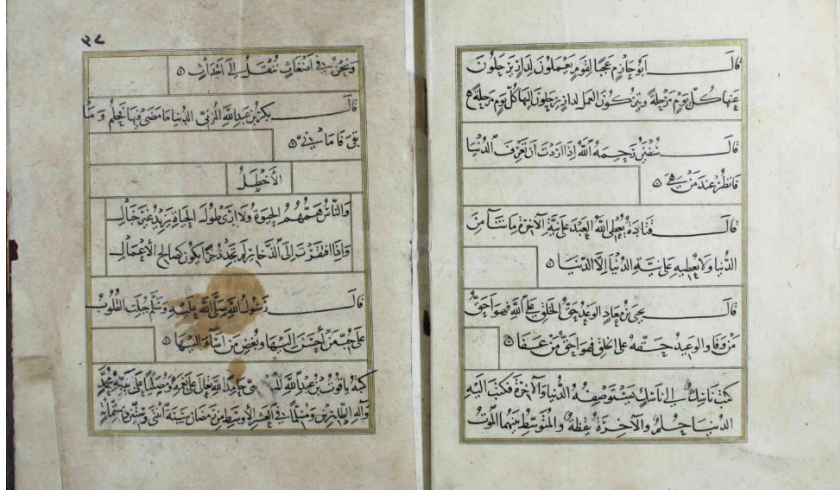 قال أبو حازم عجبا لقوم يعملون لدار يرحلون
عنها كل يوم مرحلة ويتركون العمل لدار يرحلون إليها كل يوم مرحلة
قال سفين رحمه الله إذا أردت أن تعرف الدنيا
فانظر عند من هي
قال قتادة يعطي الله العبد على نية الآخرة ما شاء من
الدنيا ولا يعطيه على نية الدنيا إلا الدنيا
قال يحيى بن معاذ الوعد حق الخلق على الله فهو أحق
من وفا والوعيد حقه على الخلق فهو أحق من عفا
كتب ناسك إلى ناسك يستوصفه الدنيا والآخرة فكتب إليه
الدنيا حلم والآخرة يقظة والمتوسط بينهما الموت
٣٨
ونحن في أضغاث ننقل إلى أجداث
قال بكر بن عبد الله المزني الدنيا ما مضى فيها فحلم وما
بقي فأماني
الأخطل
والناس همهم الحيوة ولا أرى طول الحياة يزيد غير خبال
وإذا افتقرت إلى الذخائر لم تجد ذخرا يكون كصالح الأعمال
قال رسول الله صلى الله عليه وسلم جبلت القلوب
على حب من أحسن إليها وبغض من أساء إليها
كتبه ياقوت بن عبد الله في حامدا لله على نعمه ومصليا على نبيه محمد
وآله الطاهرين ومسلما في العشر الأوسط من رمضان سنة اثنتي وثمنين وستمائة